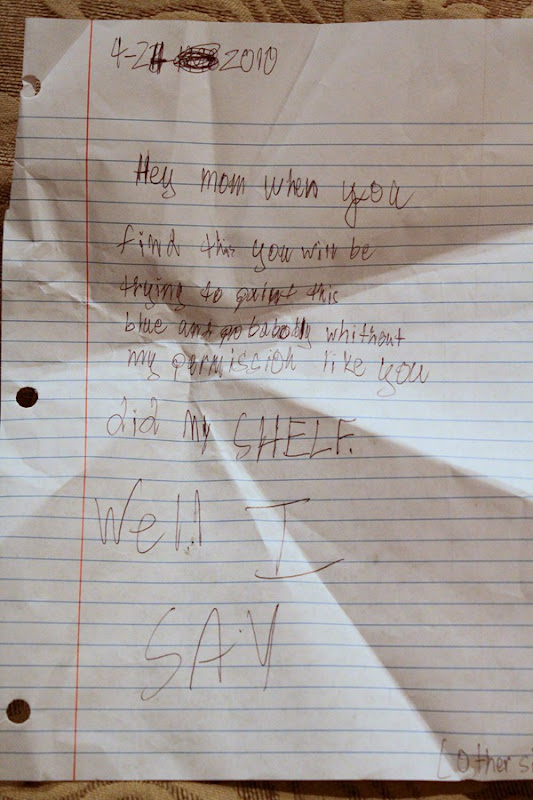 4-21 2010
Hey mom when you
find this you will be
trying to paint this
blue and pobabody whithout
my permission like you
did my SHELF.
Well I
SAY
(other si